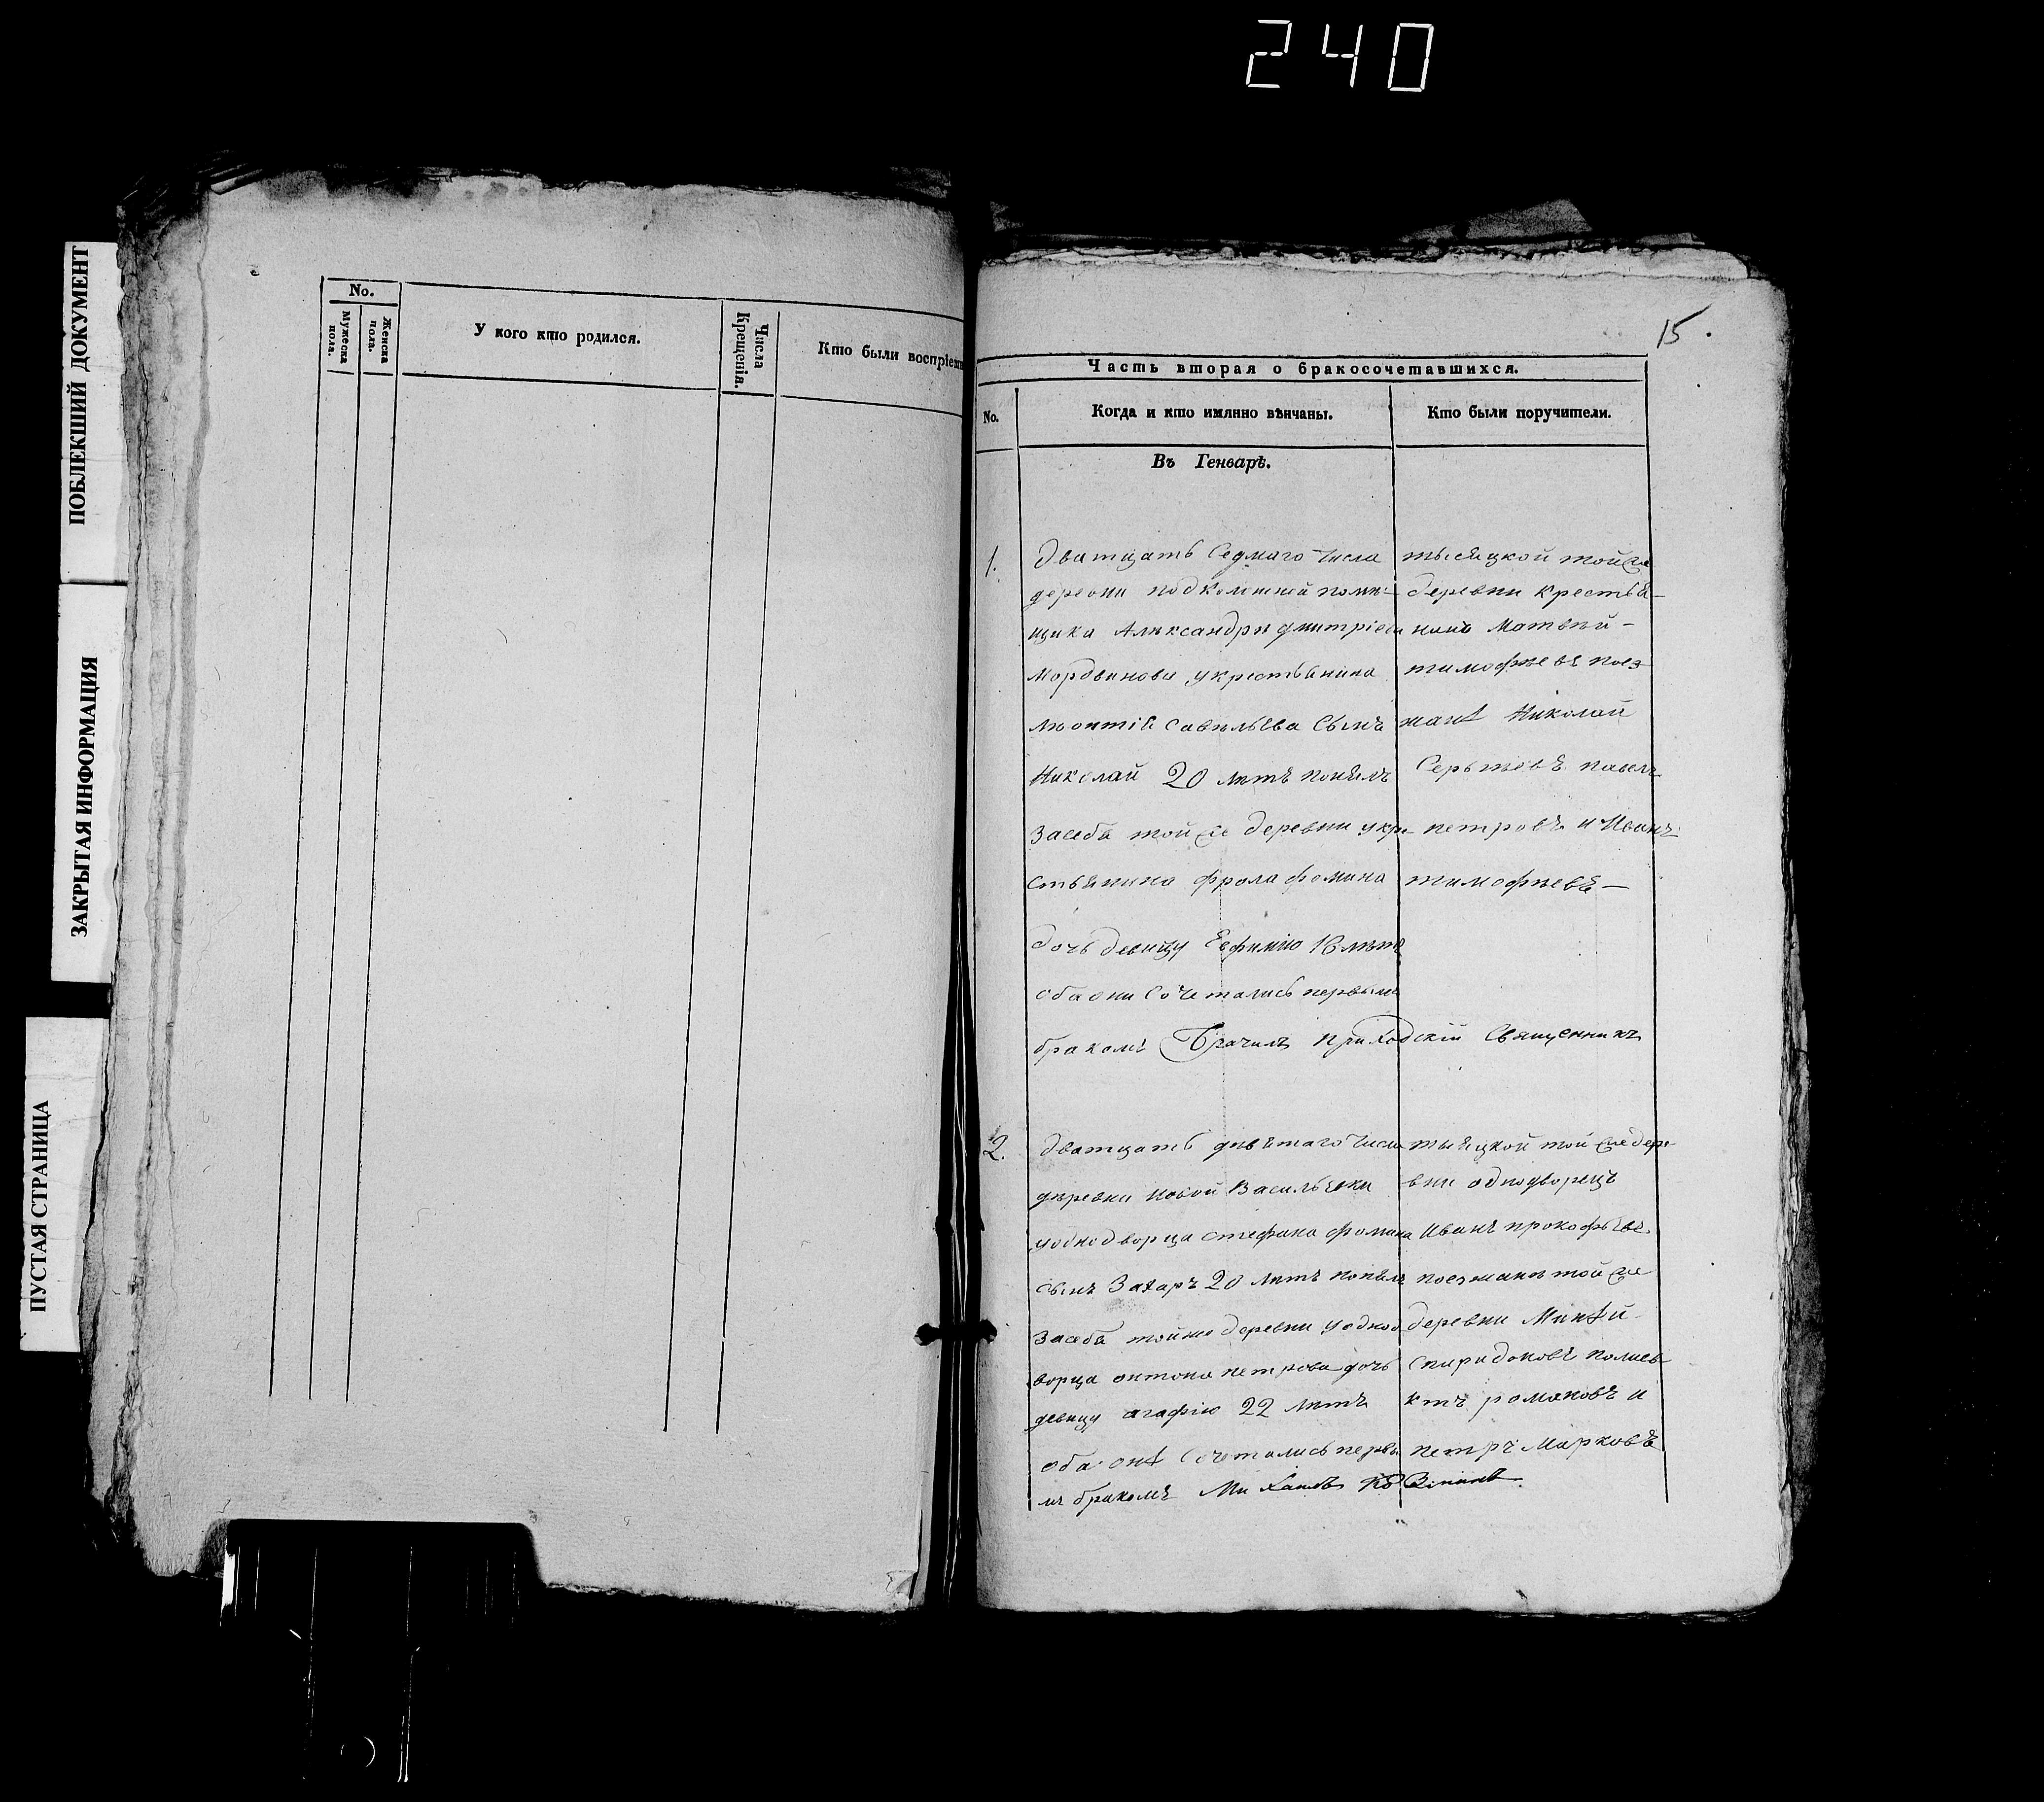 240
ПОБЛЕКШИЙ ДОКУМЕНТ
ЗАКРЫТАЯ ИНФОРМАЦИЯ
ПУСТАЯ СТРАНИЦА
No.
Мужеска пола.
Женска пола.
У кого кто родился.
Числа Крещенія.
Кто были воспріем
15.
Часть вторая о бракосочетавшихся.
No.
Когда и кто имянно вѣнчаны.
Кто были поручители.
Въ Генварѣ.
1.
дватцать седмаго числа
деревни помѣ-
щика Александра дмитріева
Мордвинова укрестьянина
савельева сынъ
Николай 20 лѣтъ понялъ
засебя той же деревни укре-
стьянина фрола фомина
дочь девицу Ефимію 18 лѣтъ
оба они сочетались первымъ
бракомъ Брачилъ приходскій Священникъ
тысяцкой той же
деревни крестья-
нинъ Матвѣй -
тимофѣевъ поез-
жанѣ Николай
Сергѣевъ павелъ
петровъ и Иванъ
тимофѣевъ -
2.
дватцать девятаго числа
деревни новой Васильевки
уоднодворца стефана фомина
сынъ Захаръ 20 лѣтъ понялъ
засебя тойже деревни уоднод
ворца антона петрова дочь
девицу агафію 22 лѣтъ
оба онѣ сочетались первы
мъ бракомъ
тысяцкой той же дере-
вни однодворецъ
Иванъ прокофьевъ
поезжанѣ той же
деревни
спиридоновъ полиев-
ктъ романовъ и
петръ Марковъ